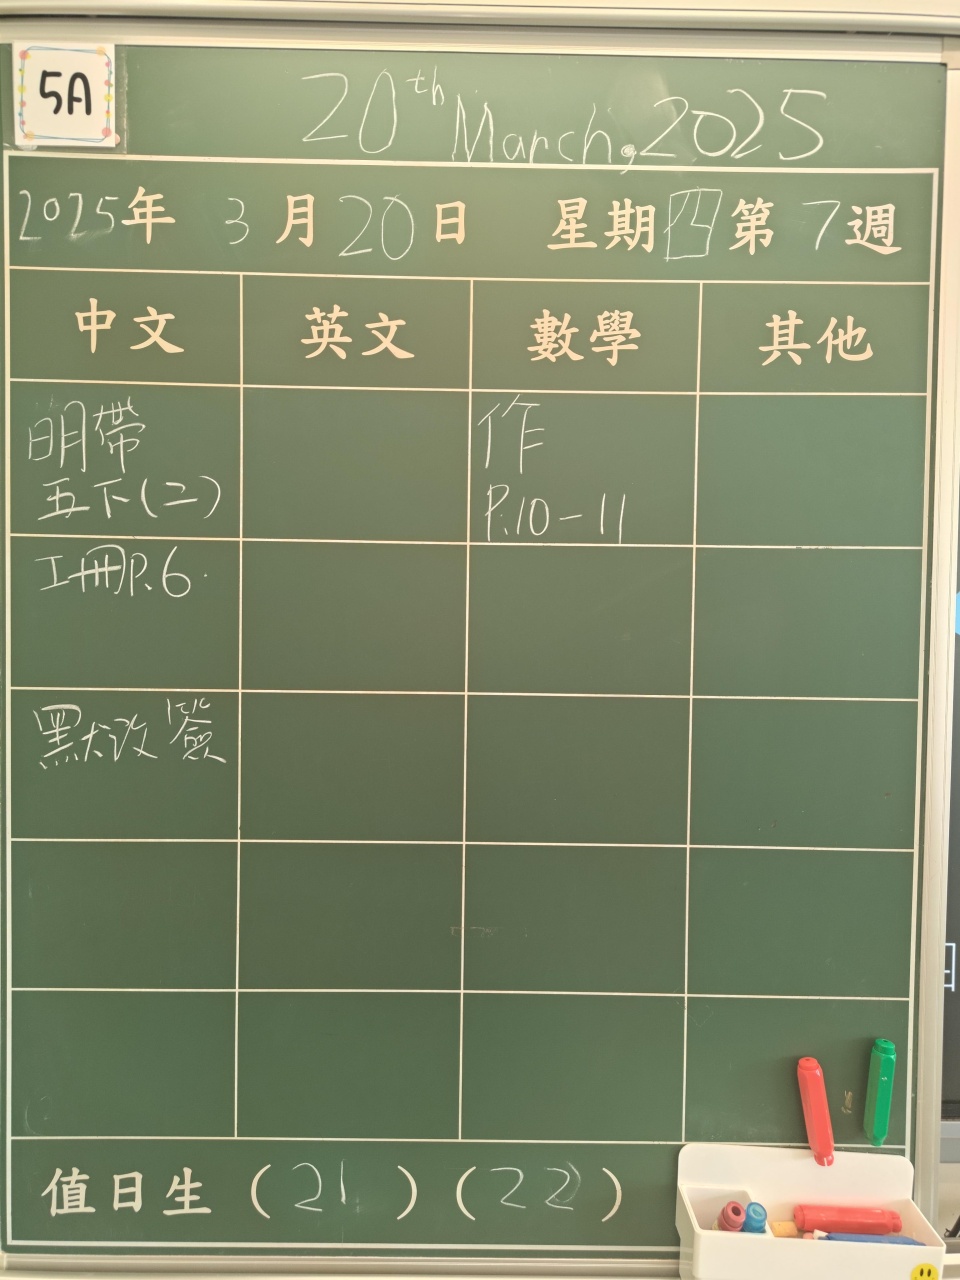 5A
20th March, 2025
2025年 3月20日 星期四 第7週
中文 英文 數學 其他
明帶
五下(二)
作
P.10-11
工冊P.6
默改簽
值日生 (21) (22)